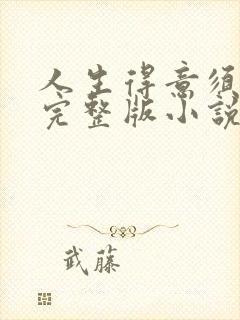 人生得意须
完整版小說
武藤